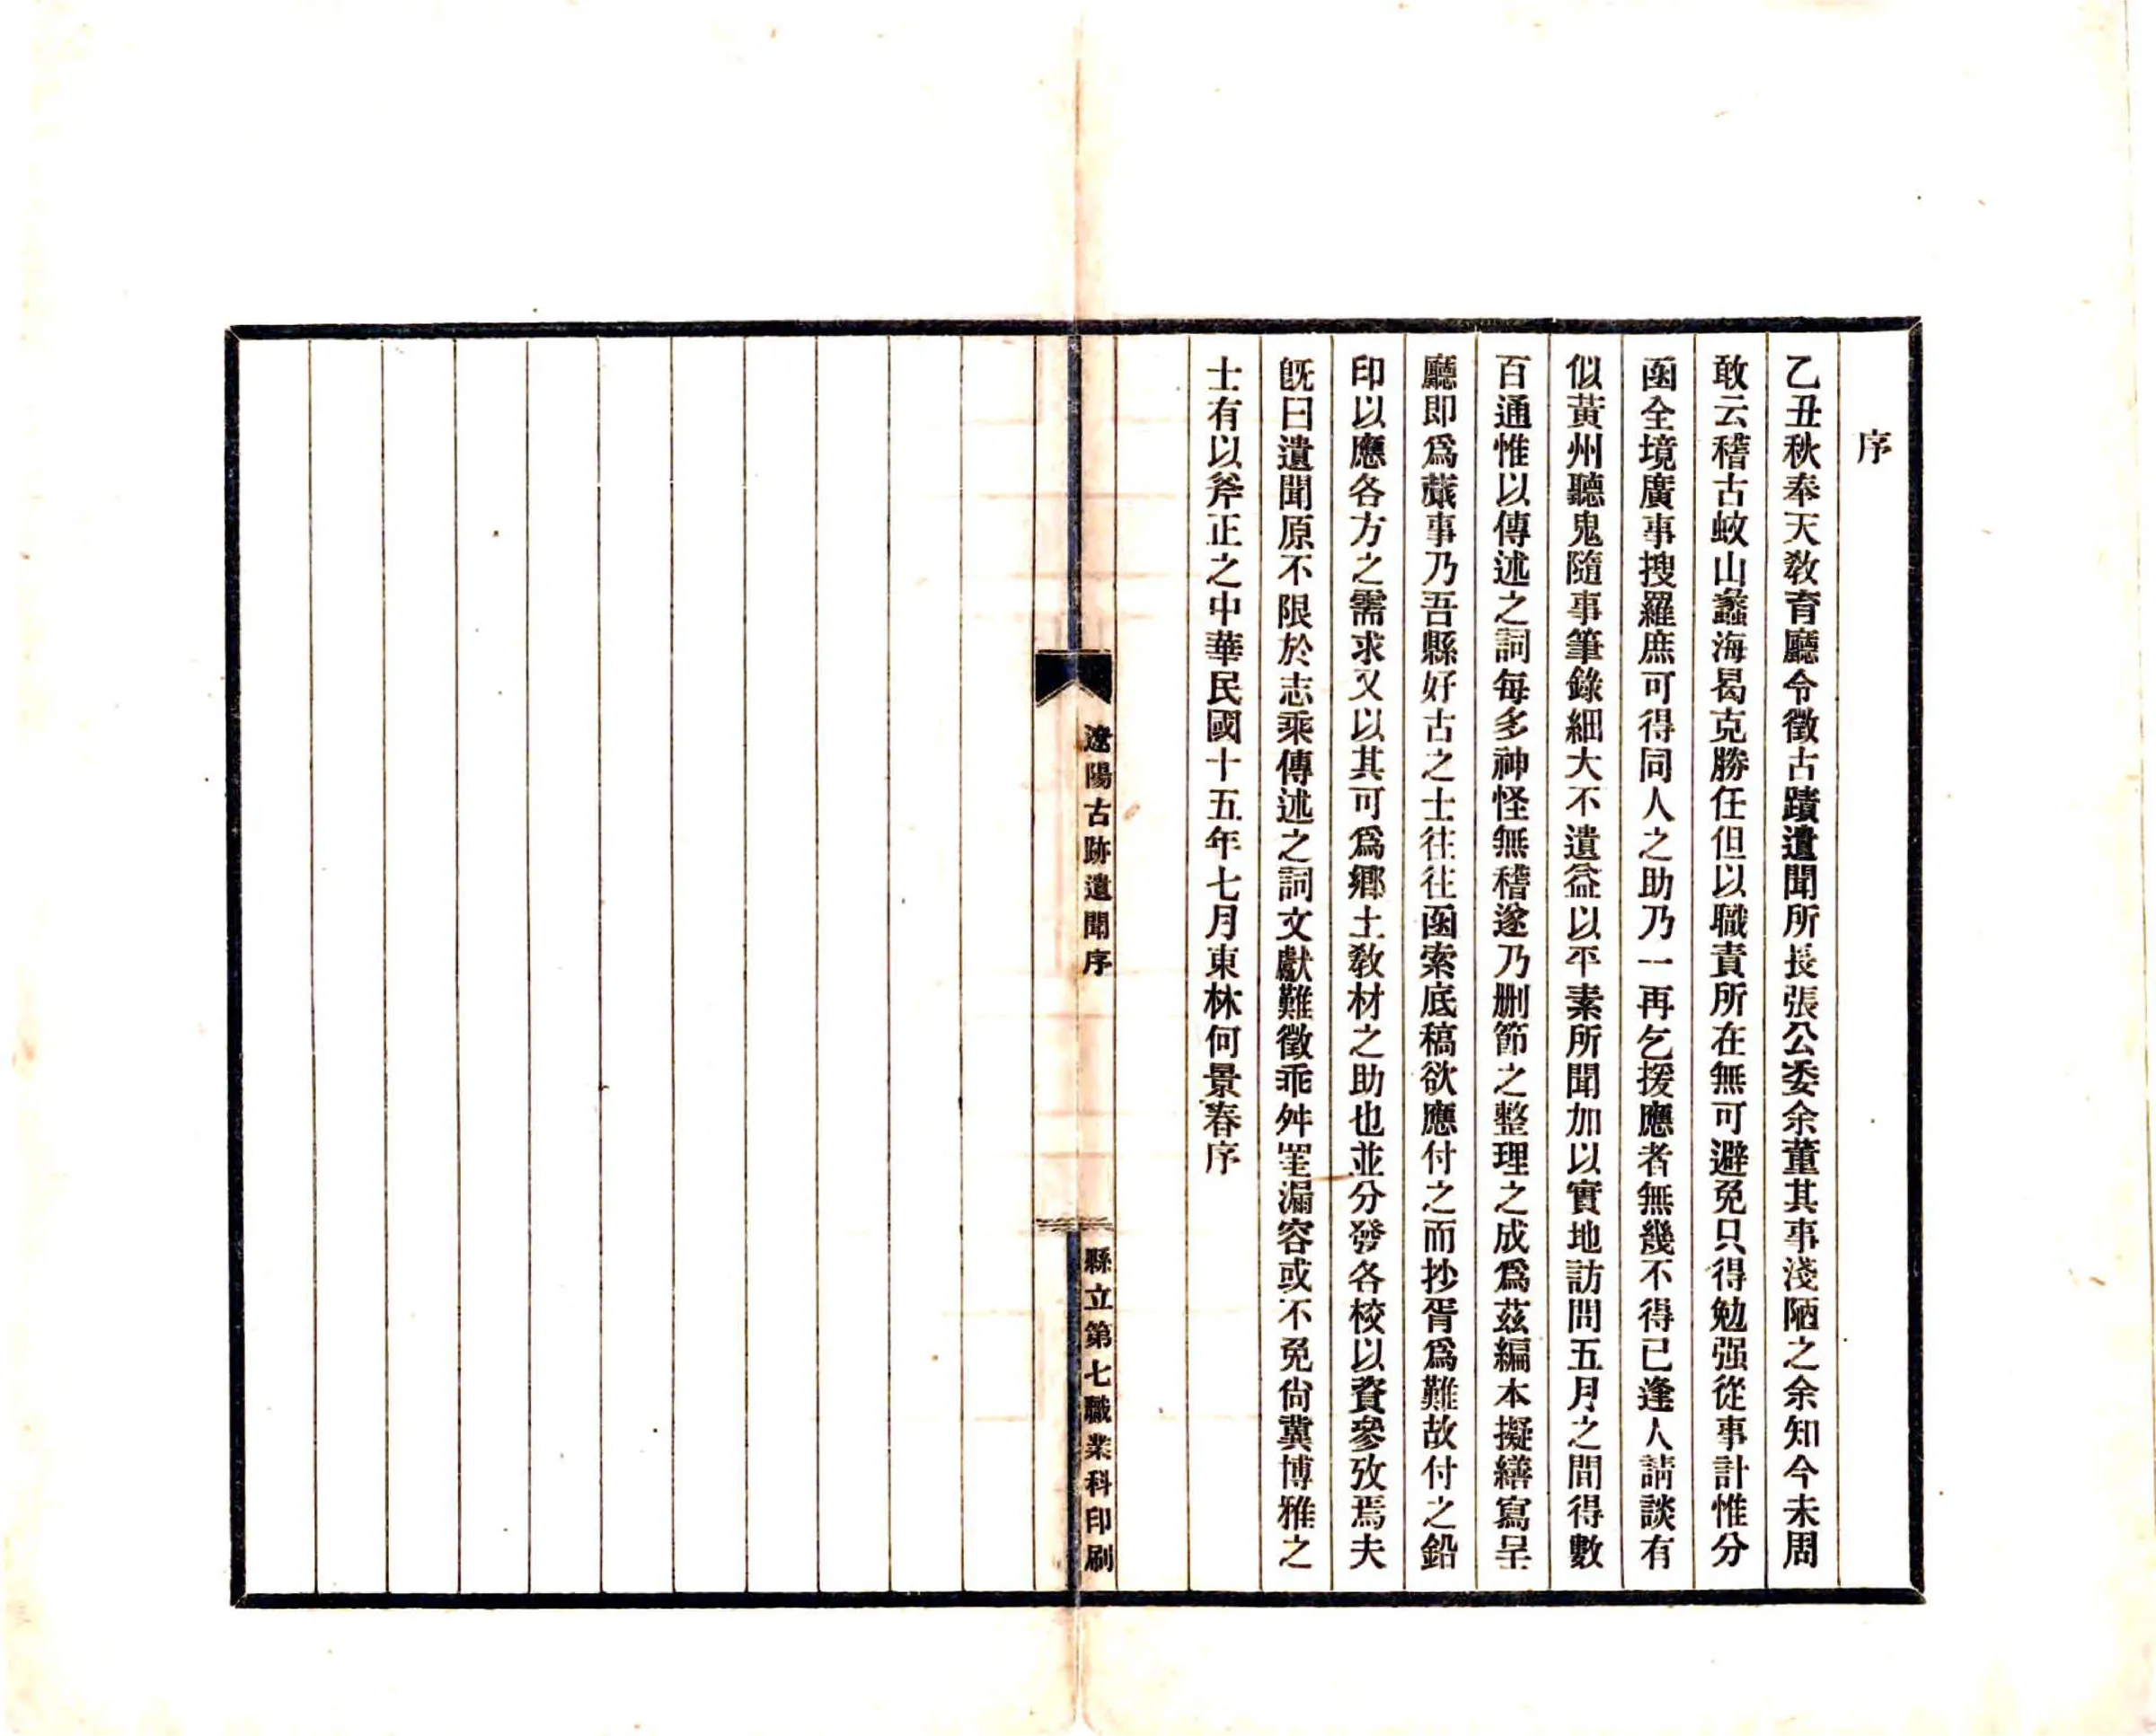 序
乙丑秋奉天教育廳令徵古蹟遺聞所長張公委余董其事淺陋之余知今未周
敢云稽古蚊山蠡海曷克勝任但以職責所在無可避免只得勉强從事計惟分
函全境廣事搜羅庶可得同人之助乃一再乞援應者無幾不得已逢人請談有
似黃州聽鬼隨事筆錄細大不遺益以平素所聞加以實地訪問五月之間得數
百通惟以傳述之詞每多神怪無稽遂乃删節之整理之成爲茲編本擬繕寫呈
廳即爲蕆事乃吾縣好古之士往往函索底稿欲應付之而抄胥爲難故付之鉛
印以應各方之需求又以其可爲鄕土教材之助也並分發各校以資參攷焉夫
旣曰遺聞原不限於志乘傳述之詞文獻難徵乖舛罣漏容或不免尙冀博雅之
士有以斧正之中華民國十五年七月東林何景春序
遼陽古跡遺聞序
縣立第七職業科印刷